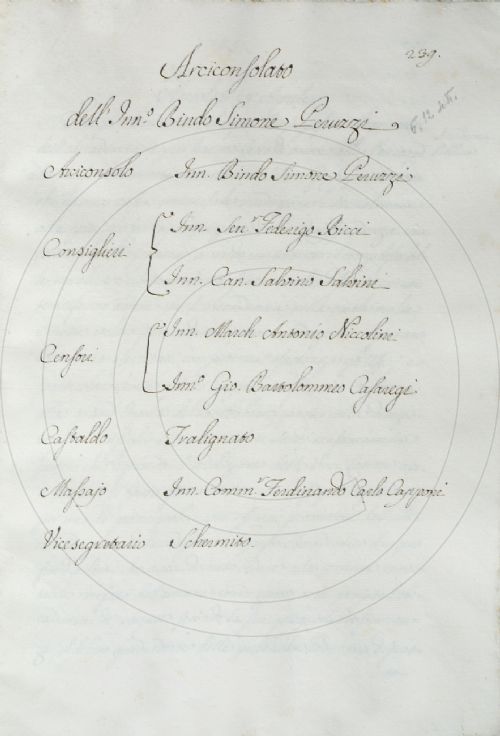 239.
Arciconsolato
dell' Inn.º Bindo Simone Peruzzi
6. 12. sett.
Arciconsolo Inn. Bindo Simone Peruzzi
Consiglieri Inn. Sen.r Federigo Ricci
Inn. Can. Salvino Salvini
Censori Inn. March. Antonio Niccolini
Inn.º Gio. Bartolommeo Casaregi
Castaldo Tralignato
Massajo Inn. Comm.r Ferdinando Carlo Capponi
Vicesegretario Schermito.